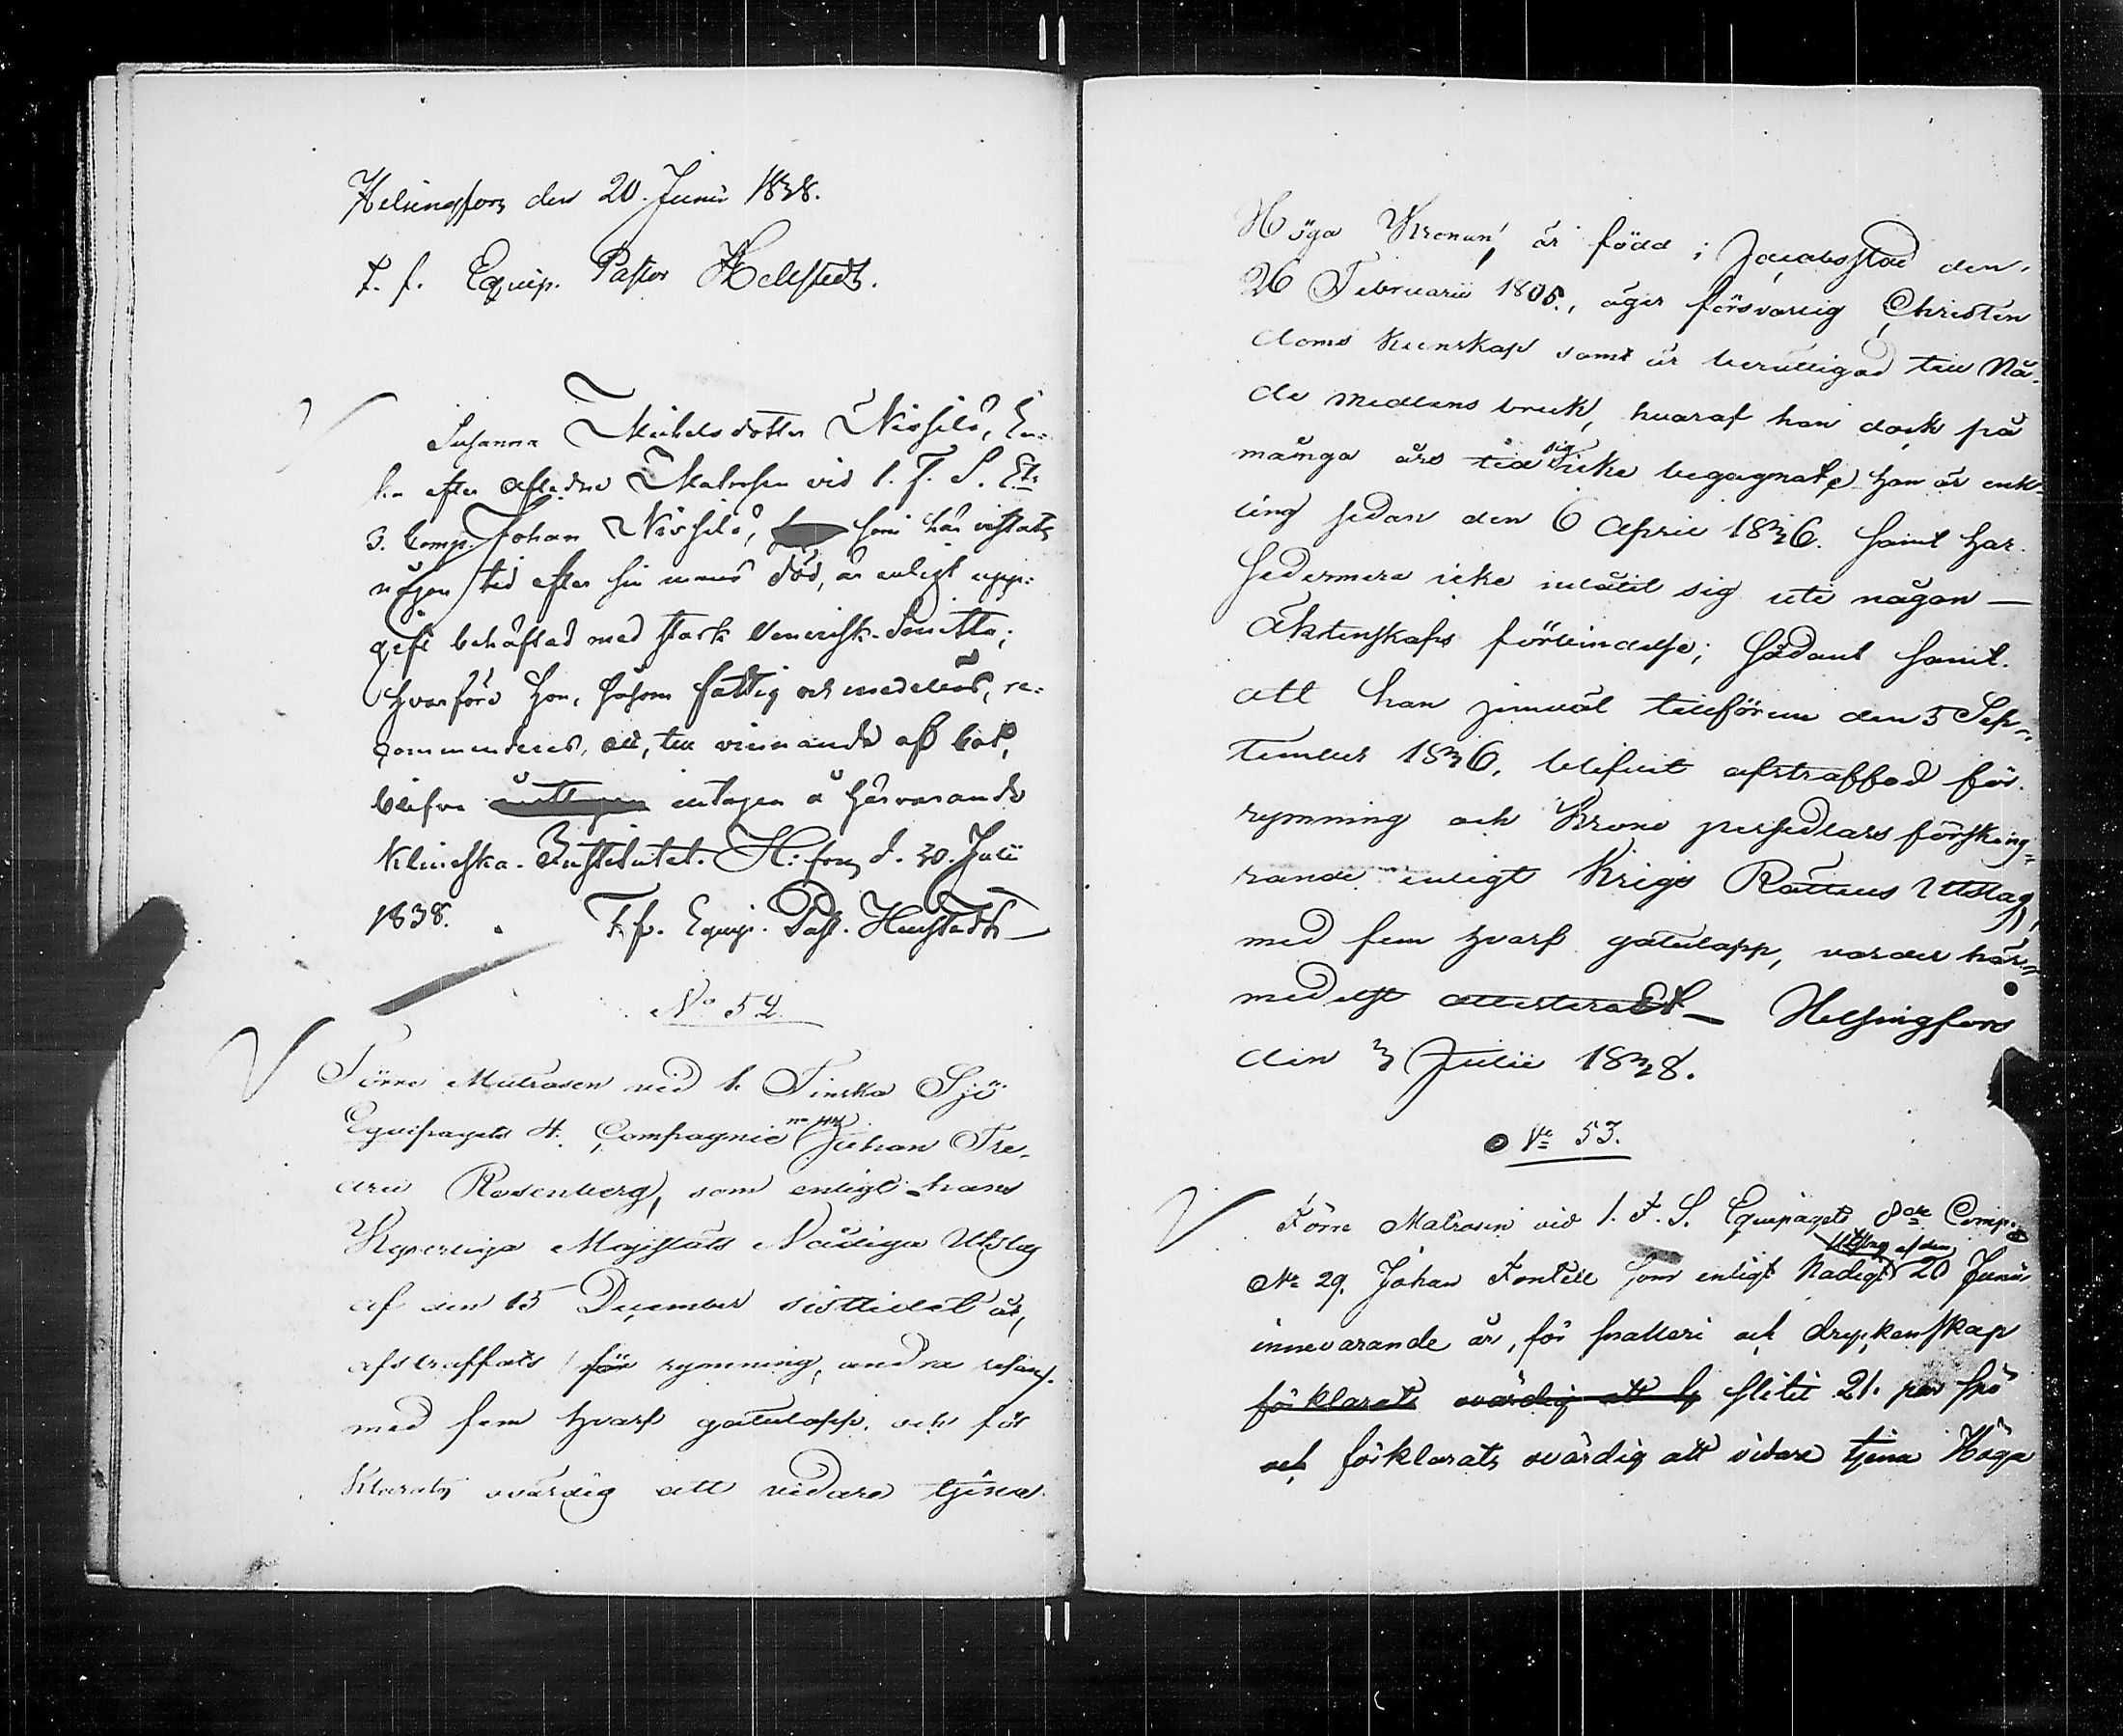 Helsingfors den 20. Junii 1838.
T. f. Equip. Pastor Hellstedt.
Susanna Michelsdotter Nissilä, En-
ka efter Aflidne Matrosen vid 1. F. S. Ets
3. Comp. Johan Nissilä, som här vistats
någon tid efter sin mans död, är enligt upp-
gift behäftad med stark Venerisk-Smitta;
hvarföre hon, såsom fattig och medellös, re-
commenderas, att, till vinnande af bot,
blifva intagen å härvarande
Kliniska-Institutet. H:fors d. 30. Julii
1838. T. f. Equip. Past. Hellstedt
No 52
Förre Matrosen vid 1. Finska Sjö
Equipagets 4. Compagnie Johan Fre-
dric Rosenberg, som enligt hans
Kejserliga Majestäts Nådiga Utslag
af den 15 December sistlidet år,
afstraffats för rymning, andra resan,
med fem hvarf gatulopp, och för
klarats ovärdig att vidare tjena
Höga Kronan, är född i Jacobsstad den
26 Februarii 1805., äger försvarlig Christen
doms kunskap samt är berättigad till Nå-
de medlens bruk, hvaraf han dock på
många års tid sig icke begagnat, han är enk-
ling sedan den 6 April 1836. samt har
sedermera icke inlåtit sig uti någon —
Äktenskaps förbindelse; sådant samt
att han jemväl tillförene den 5 Sep-
tember 1836. blifvit afstraffad för
rymning och Krono persedlars försking-
rande enligt Krigs Rättens Utslag,
med fem hvarf gatulopp, varder här-
medelst attesteradt — Helsingfors
den 3 Julii 1838.
No 53.
Förre Matrosen vid 1. F. S. Equipagets 8de Comp.
No 29. Johan Fontell som enligt Nådigt Utslag af den 20 Junii
innevarande år, för snatteri och dryckenskap
förklarats ovärdig att slitit 21. par spö
och förklarats ovärdig att vidare tjena Höga